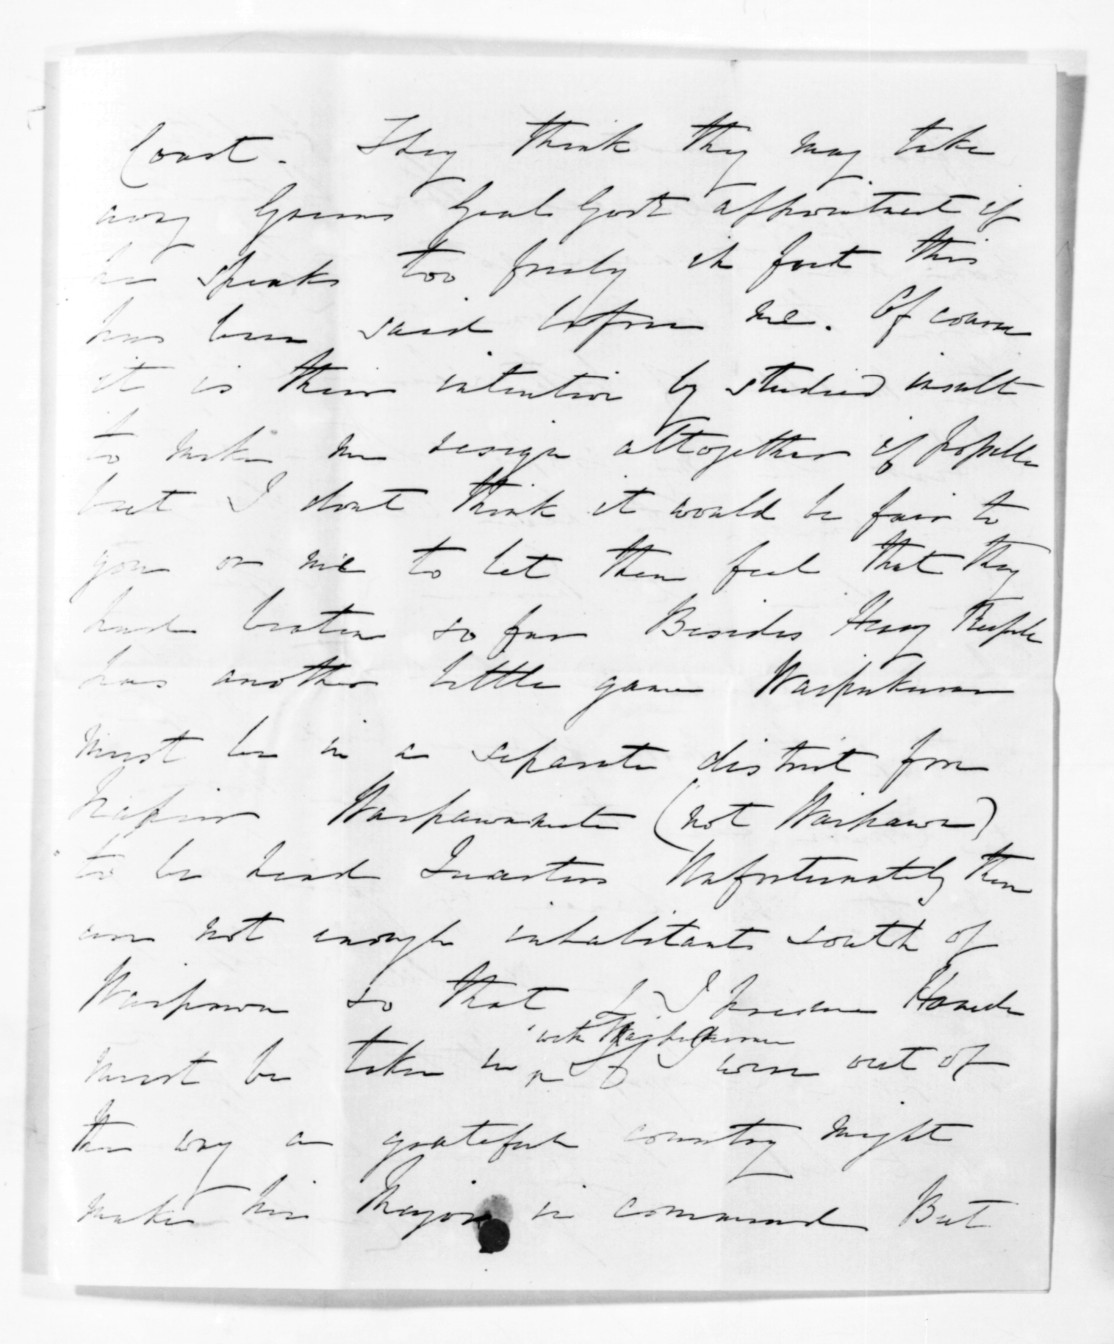 Coast. They think they may take
away Green's Genl Govt appointment if
he speaks too freely in fact this
has been said before me. Of course
it is their intention by studied insult
to make me resign altogether if possible
but I dont think it would be fair to
you or me to let them feel that they
had beaten so far Besides Henry
has another little game Waipukurau
must be in a separate district from
Napier Waipawamate (not Waipawa)
to be Head Quarters Unfortunately there
are not enough inhabitants south of
Waipawa so that I presume
must be taken in with Waipukurau If I were out of
the way a grateful country might
make him Major in command But